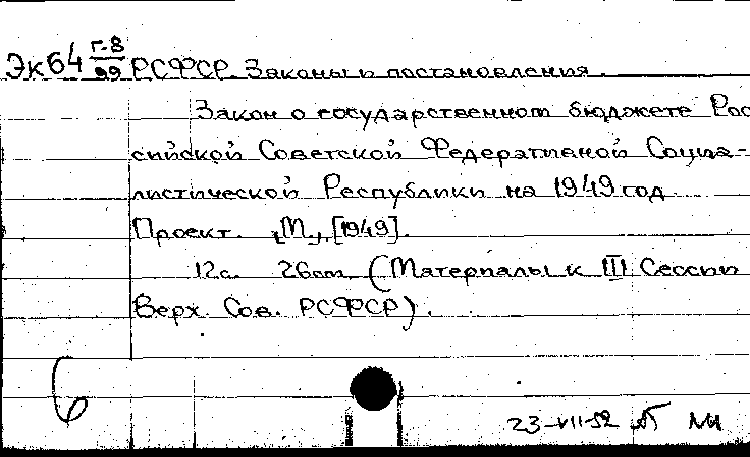 Эк64 Г-8/99 РСФСР. Законы и постановления.
Закон о государственном бюджете Рос
сийской Советской Федеративной Социа-
листической Республики на 1949 год.
Проект. [М.], [1949].
12с. 26см. (Материалы к III Сессии
Верх. Сов. РСФСР).
6
23-VII-52